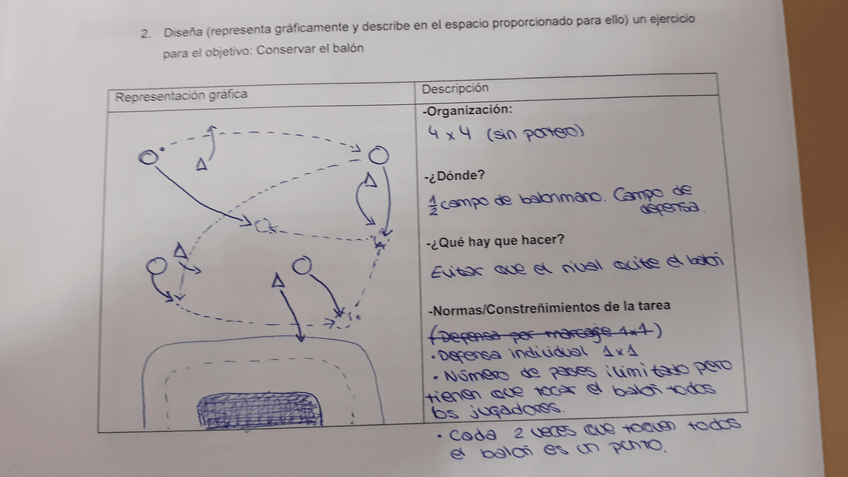 2. Diseña (representa gráficamente y describe en el espacio proporcionado para ello) un ejercicio
para el objetivo: Conservar el balón
Representación gráfica
Descripción
-Organización:
4 x 4 (sin portero)
-¿Dónde?
1/2 campo de balonmano. Campo de
defensa.
-¿Qué hay que hacer?
Evitar que el rival quite el balón
-Normas/Constreñimientos de la tarea
(Defensa por marcaje 1x1)
· Defensa individual 1x1
· Número de pases ilimitado pero
tienen que tocar el balón todos
los jugadores.
· Cada 2 veces que toquen todos
el balón es un punto.